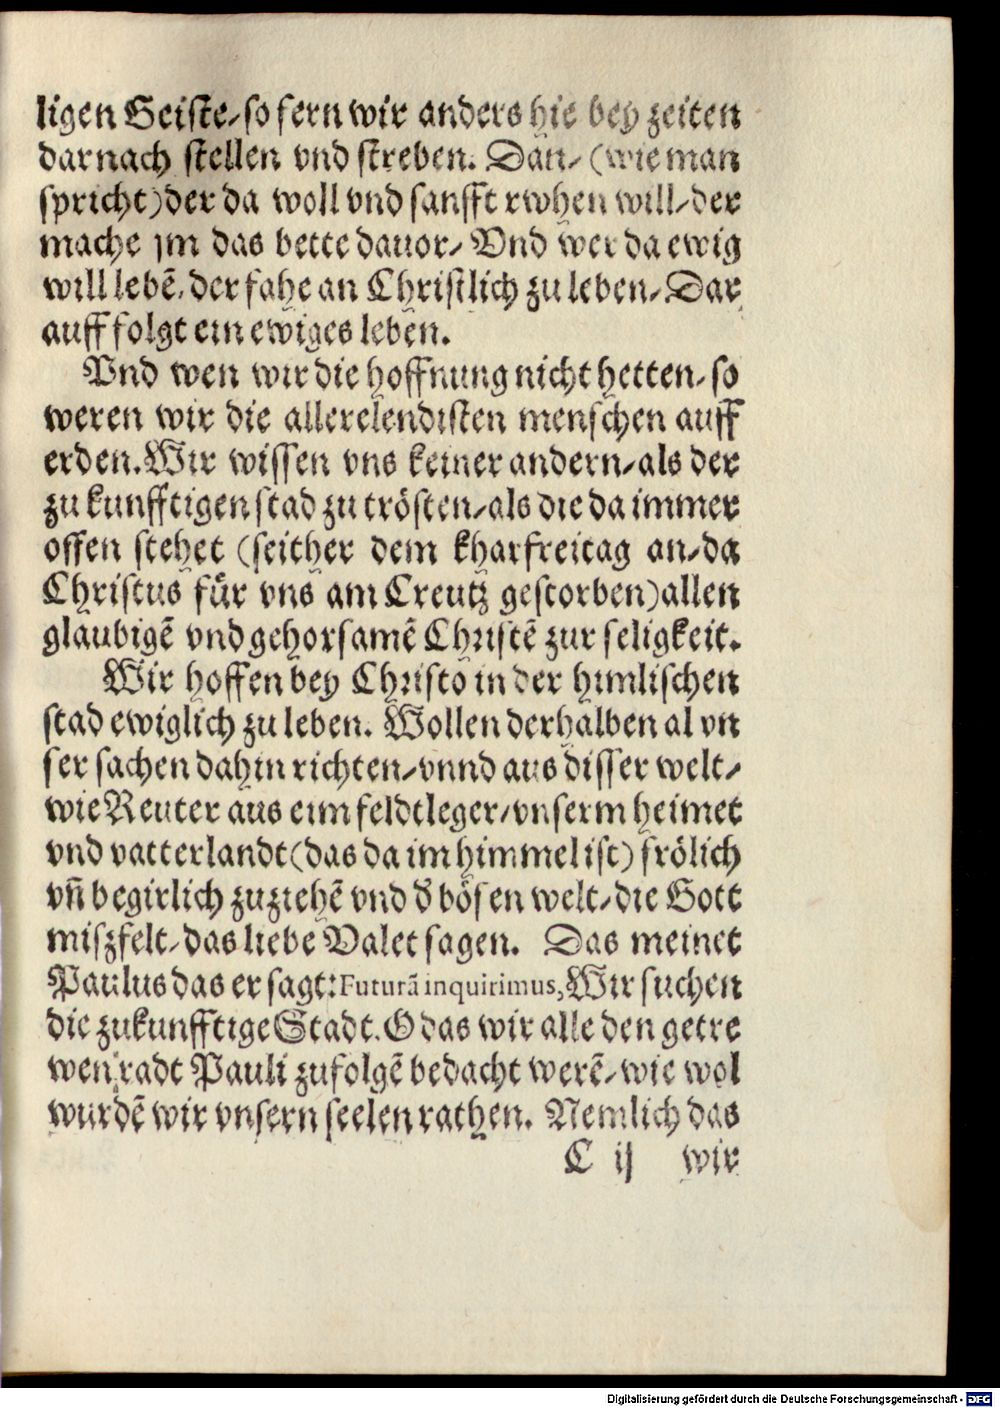 ligen Geiste/ so fern wir anders hie bey zeiten
darnach stellen vnd streben. Dan/ (wie man
spricht) der da woll vnd sanfft rwhen will/ der
mache jm das bette dauor/ Vnd wer da ewig
will lebē/ der fahe an Christlich zu leben/ Dar
auff folgt ein ewiges leben.
Vnd wen wir die hoffnung nicht hetten/ so
weren wir die allerelendisten menschen auff
erden. Wir wissen vns keiner andern/ als der
zukunfftigen stad zu trösten/ als die da immer
offen stehet (seither dem kharfreitag an/ da
Christus für vns am Creutz gestorben) allen
glaubigē vnd gehorsamē Christē zur seligkeit.
Wir hoffen bey Christo in der himlischen
stad ewiglich zu leben. Wollen derhalben al vn
ser sachen dahin richten/ vnnd aus disser welt/
wie Reuter aus eim feldtleger/ vnserm heimet
vnd vatterlandt (das da im himmel ist) frölich
vn̄ begirlich zuziehē vnd d̕ bösen welt/ die Gott
miszfelt/ das liebe Valet sagen. Das meinet
Paulus das er sagt: Futurā inquirimus, Wir suchen
die zukunfftige Stadt. O das wir alle den getre
wen radt Pauli zufolgē bedacht werē/ wie wol
wurdē wir vnsern seelen rathen. Nemlich das
C ij wir
Digitalisierung gefördert durch die Deutsche Forschungsgemeinschaft - DFG